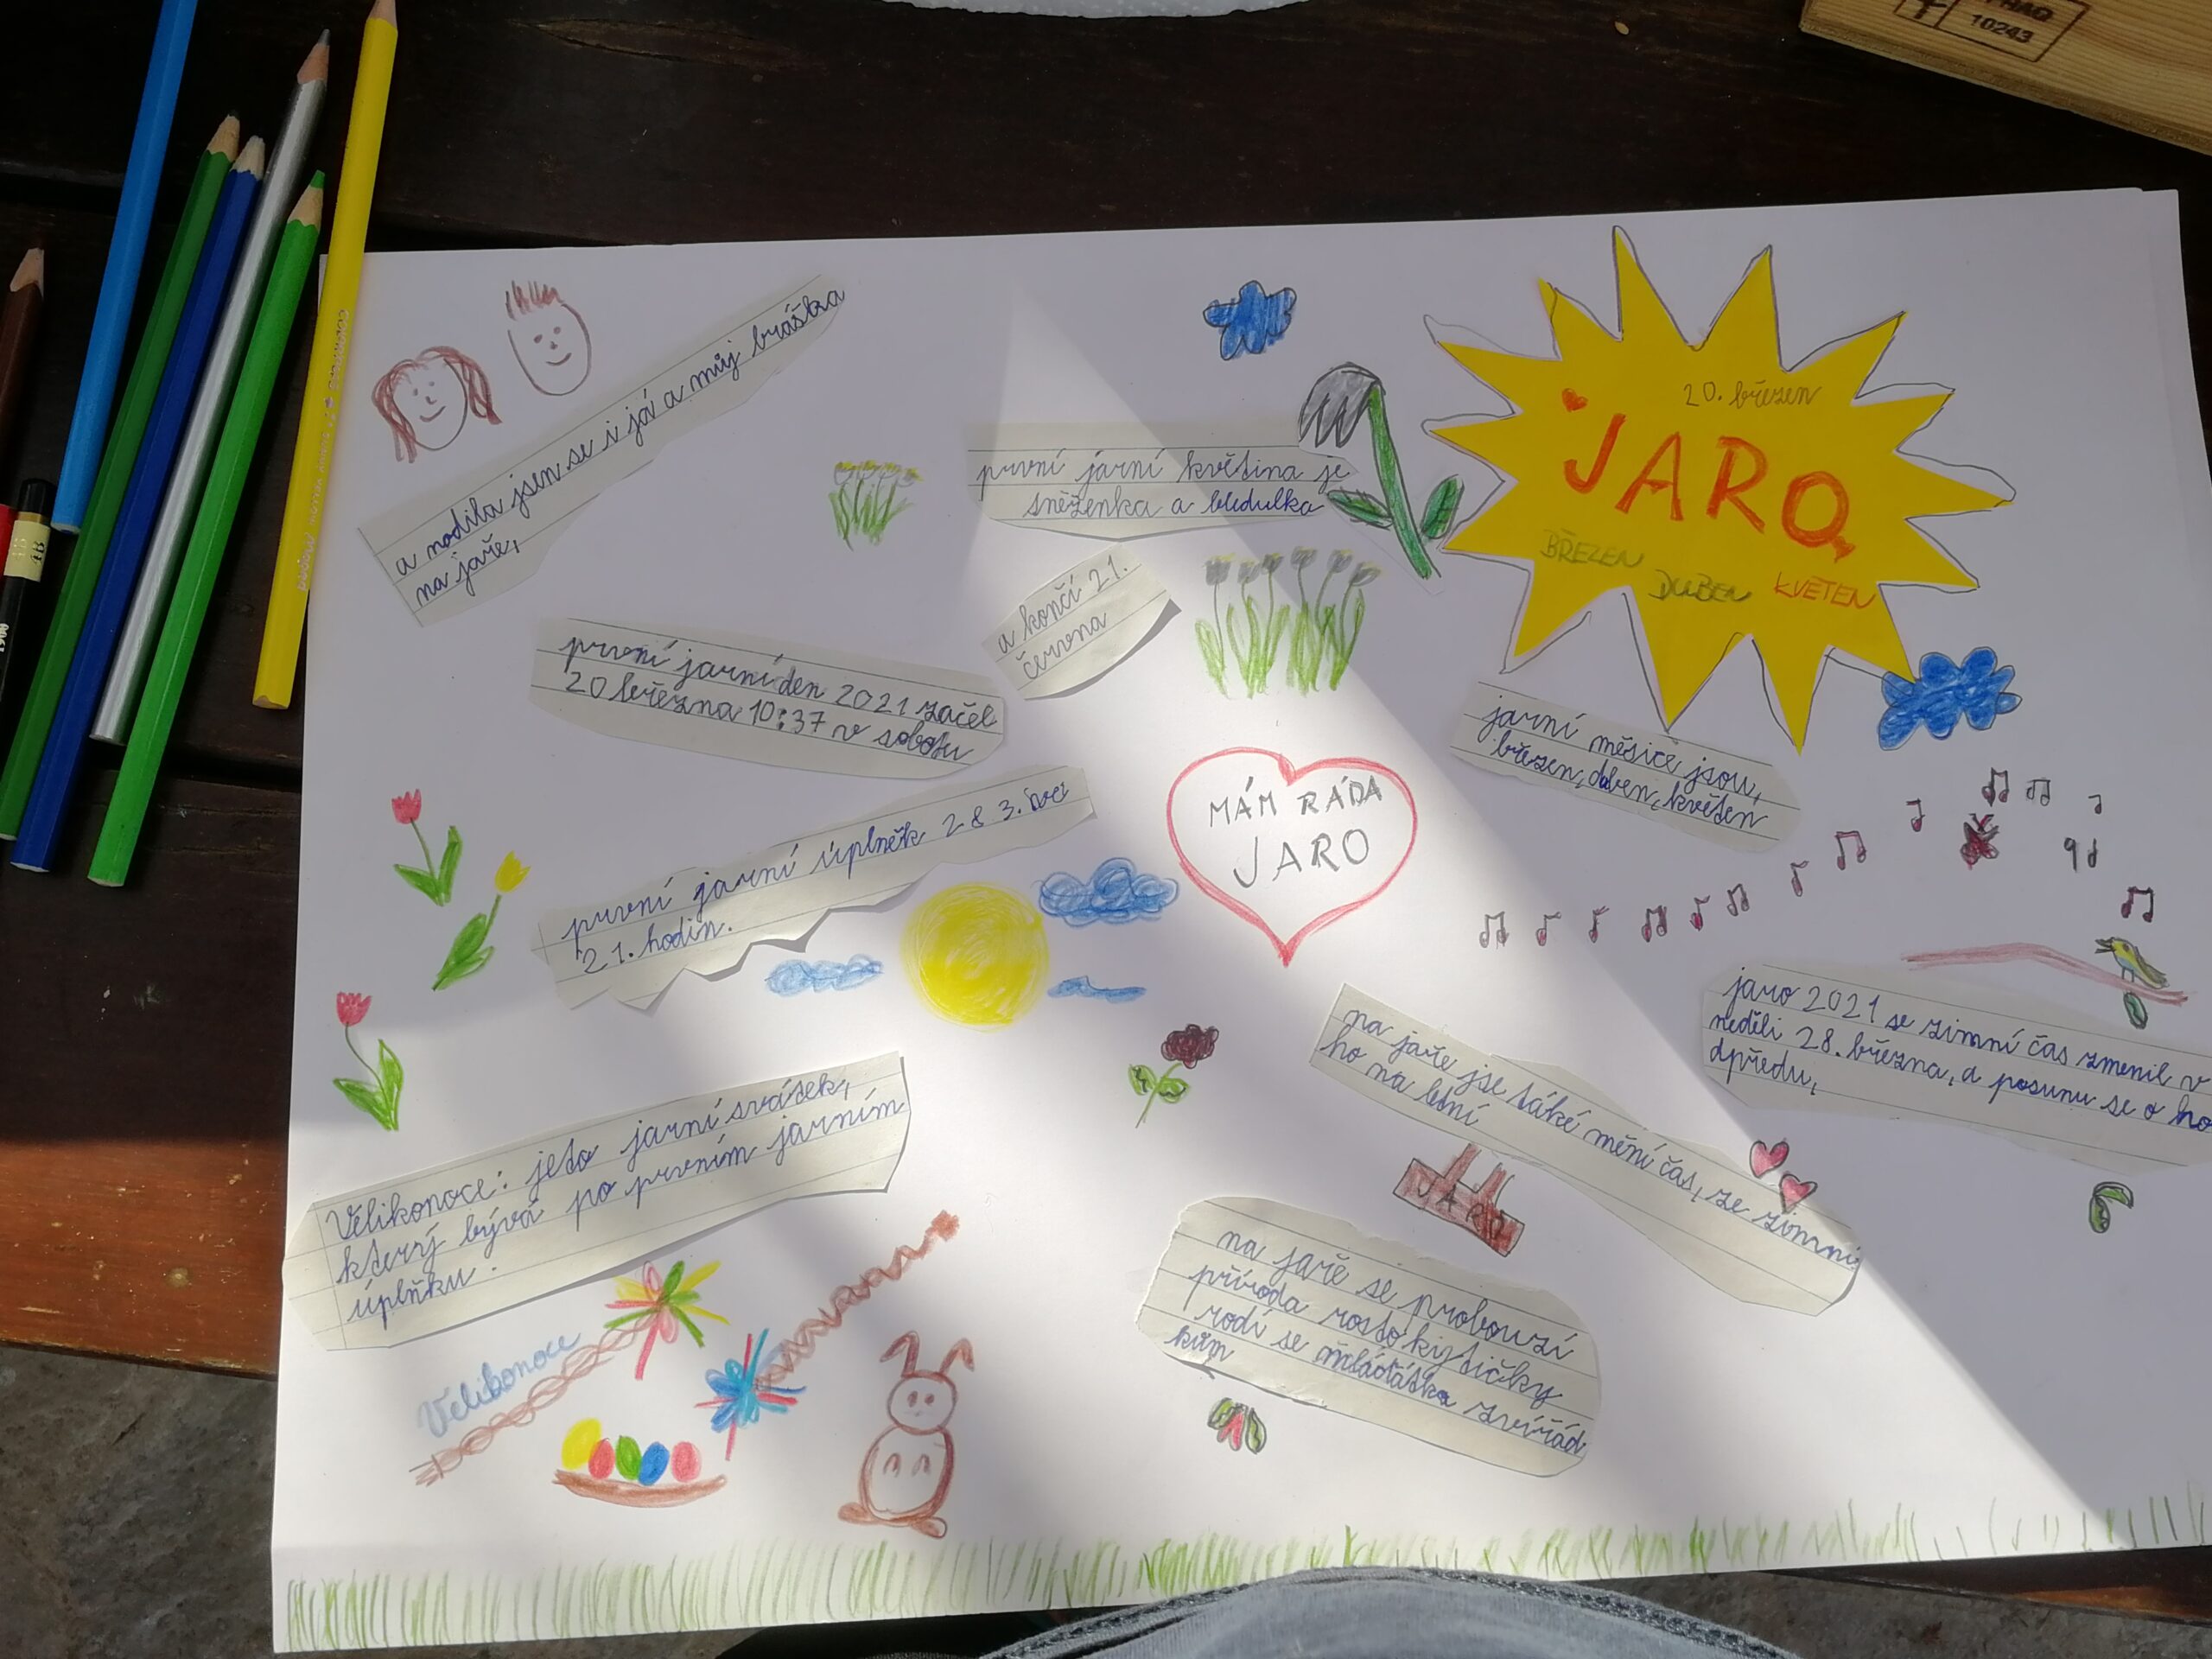 10243
a nodila jsen se i já a můj bráška
na jaře,
20. březen
JARO
BŘEZEN
DUBEN
KVETEN
první jarní květina je
sněženka a bledulka
a končí 21.
června
první jarní den 2021 začel
20 března 10:37 v sobotu
jarní měsíce jsou,
březen, duben, květen
MÁM RÁDA
JARO
první jarní úplněk 28 3. ve
21. hodin.
jaro 2021 se zimní čas zmenil v
neděli 28. března, a posunu se o ho
dpředu,
na jaře jse také mění čas, ze zimní
ho na letní
Velikonoce: jeto jarní svátek,
který bývá po prvním jarním
úplňku.
JARO
na jaře se probouzí
příroda rosto kytičky
rodí se mláďátka zvířád
kům
Velikonoce